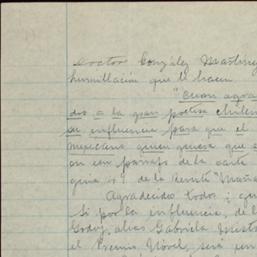 Doctor González Martínez
humillación que le hacen
"Cuan agra-
dos a la gran poetisa chilena
su influencia para que el
mexicano quien quiera que s
on con párrafo de la carta
de la Revista "Mañana
Agradecidos todos; que
Si por la influencia, de l
Godoy, alias Gabriela Mistra
el Premio Nóvel, será un